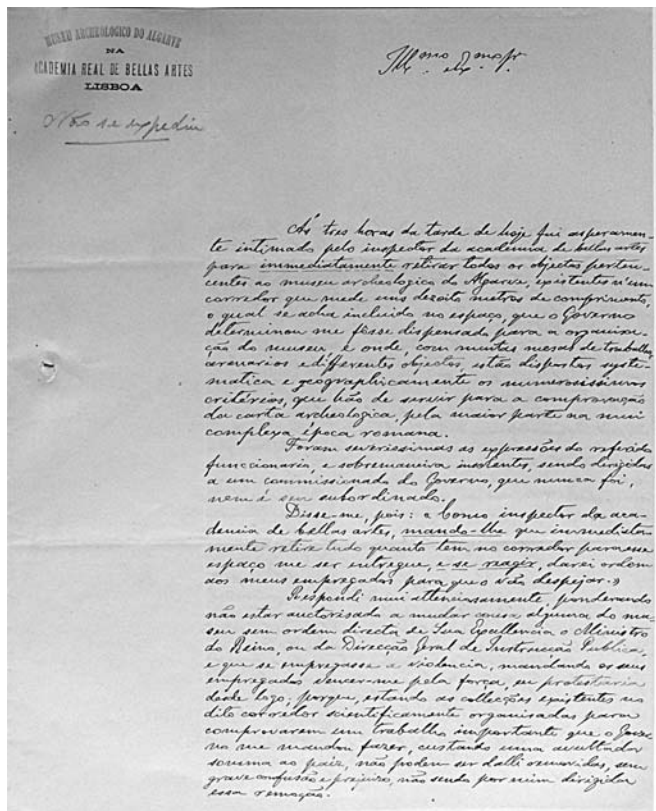 MUSEU ARCHEOLOGICO DO ALGARVE
NA
ACADEMIA REAL DE BELLAS ARTES
LISBOA
Não se expediu
Illmo Exmo Sr.
Ás tres horas da tarde de hoje fui asperamen-
te intimado pelo inspector da academia de bellas artes
para immediatamente retirar todos os objectos perten-
centes ao museu archeologico do Algarve, existentes n'um
corredor que mede uns dezoito metros de comprimento,
o qual se acha incluido no espaço, que o Governo
determinou me fôsse dispensado para a organisa-
ção do museu, e onde, com muitas mesas de trabalho,
armarios e differentes objectos, estão dispostos syste-
matica e geographicamente os numerosissimos
critérios, que hão de servir para a comprovação
da carta archeologica, pela maior parte na mui
complexa época romana.
Foram severissimas as expressões do referido
funccionario, e sobremaneira insolentes, sendo dirigidas
a um commissionado do Governo, que nunca foi,
nem é seu subordinado.
Disse-me, pois: «Como inspector da aca-
demia de bellas artes, mando-lhe que immediata-
mente retire tudo quanto tem no corredor para esse
espaço me ser entregue, e se reagir, darei ordem
aos meus empregados para que o vão despejar.»
Respondi mui attenciosamente, ponderando
não estar auctorisado a mudar cousa alguma do mu-
seu sem ordem directa de Sua Excellencia o Ministro
do Reino, ou da Direcção Geral de Instrucção Publica,
e que se empregasse a violencia, mandando os seus
empregados vencer-me pela força, eu protestaria
desde logo; porque, estando as collecções existentes no
dito corredor scientificamente organisadas para
comprovarem um trabalho importante que o Gover-
no me mandou fazer, custando uma avultada
somma ao paiz, não podem ser dalli removidas, sem
grave confusão e prejuizo, não sendo por mim dirigida
essa remoção.